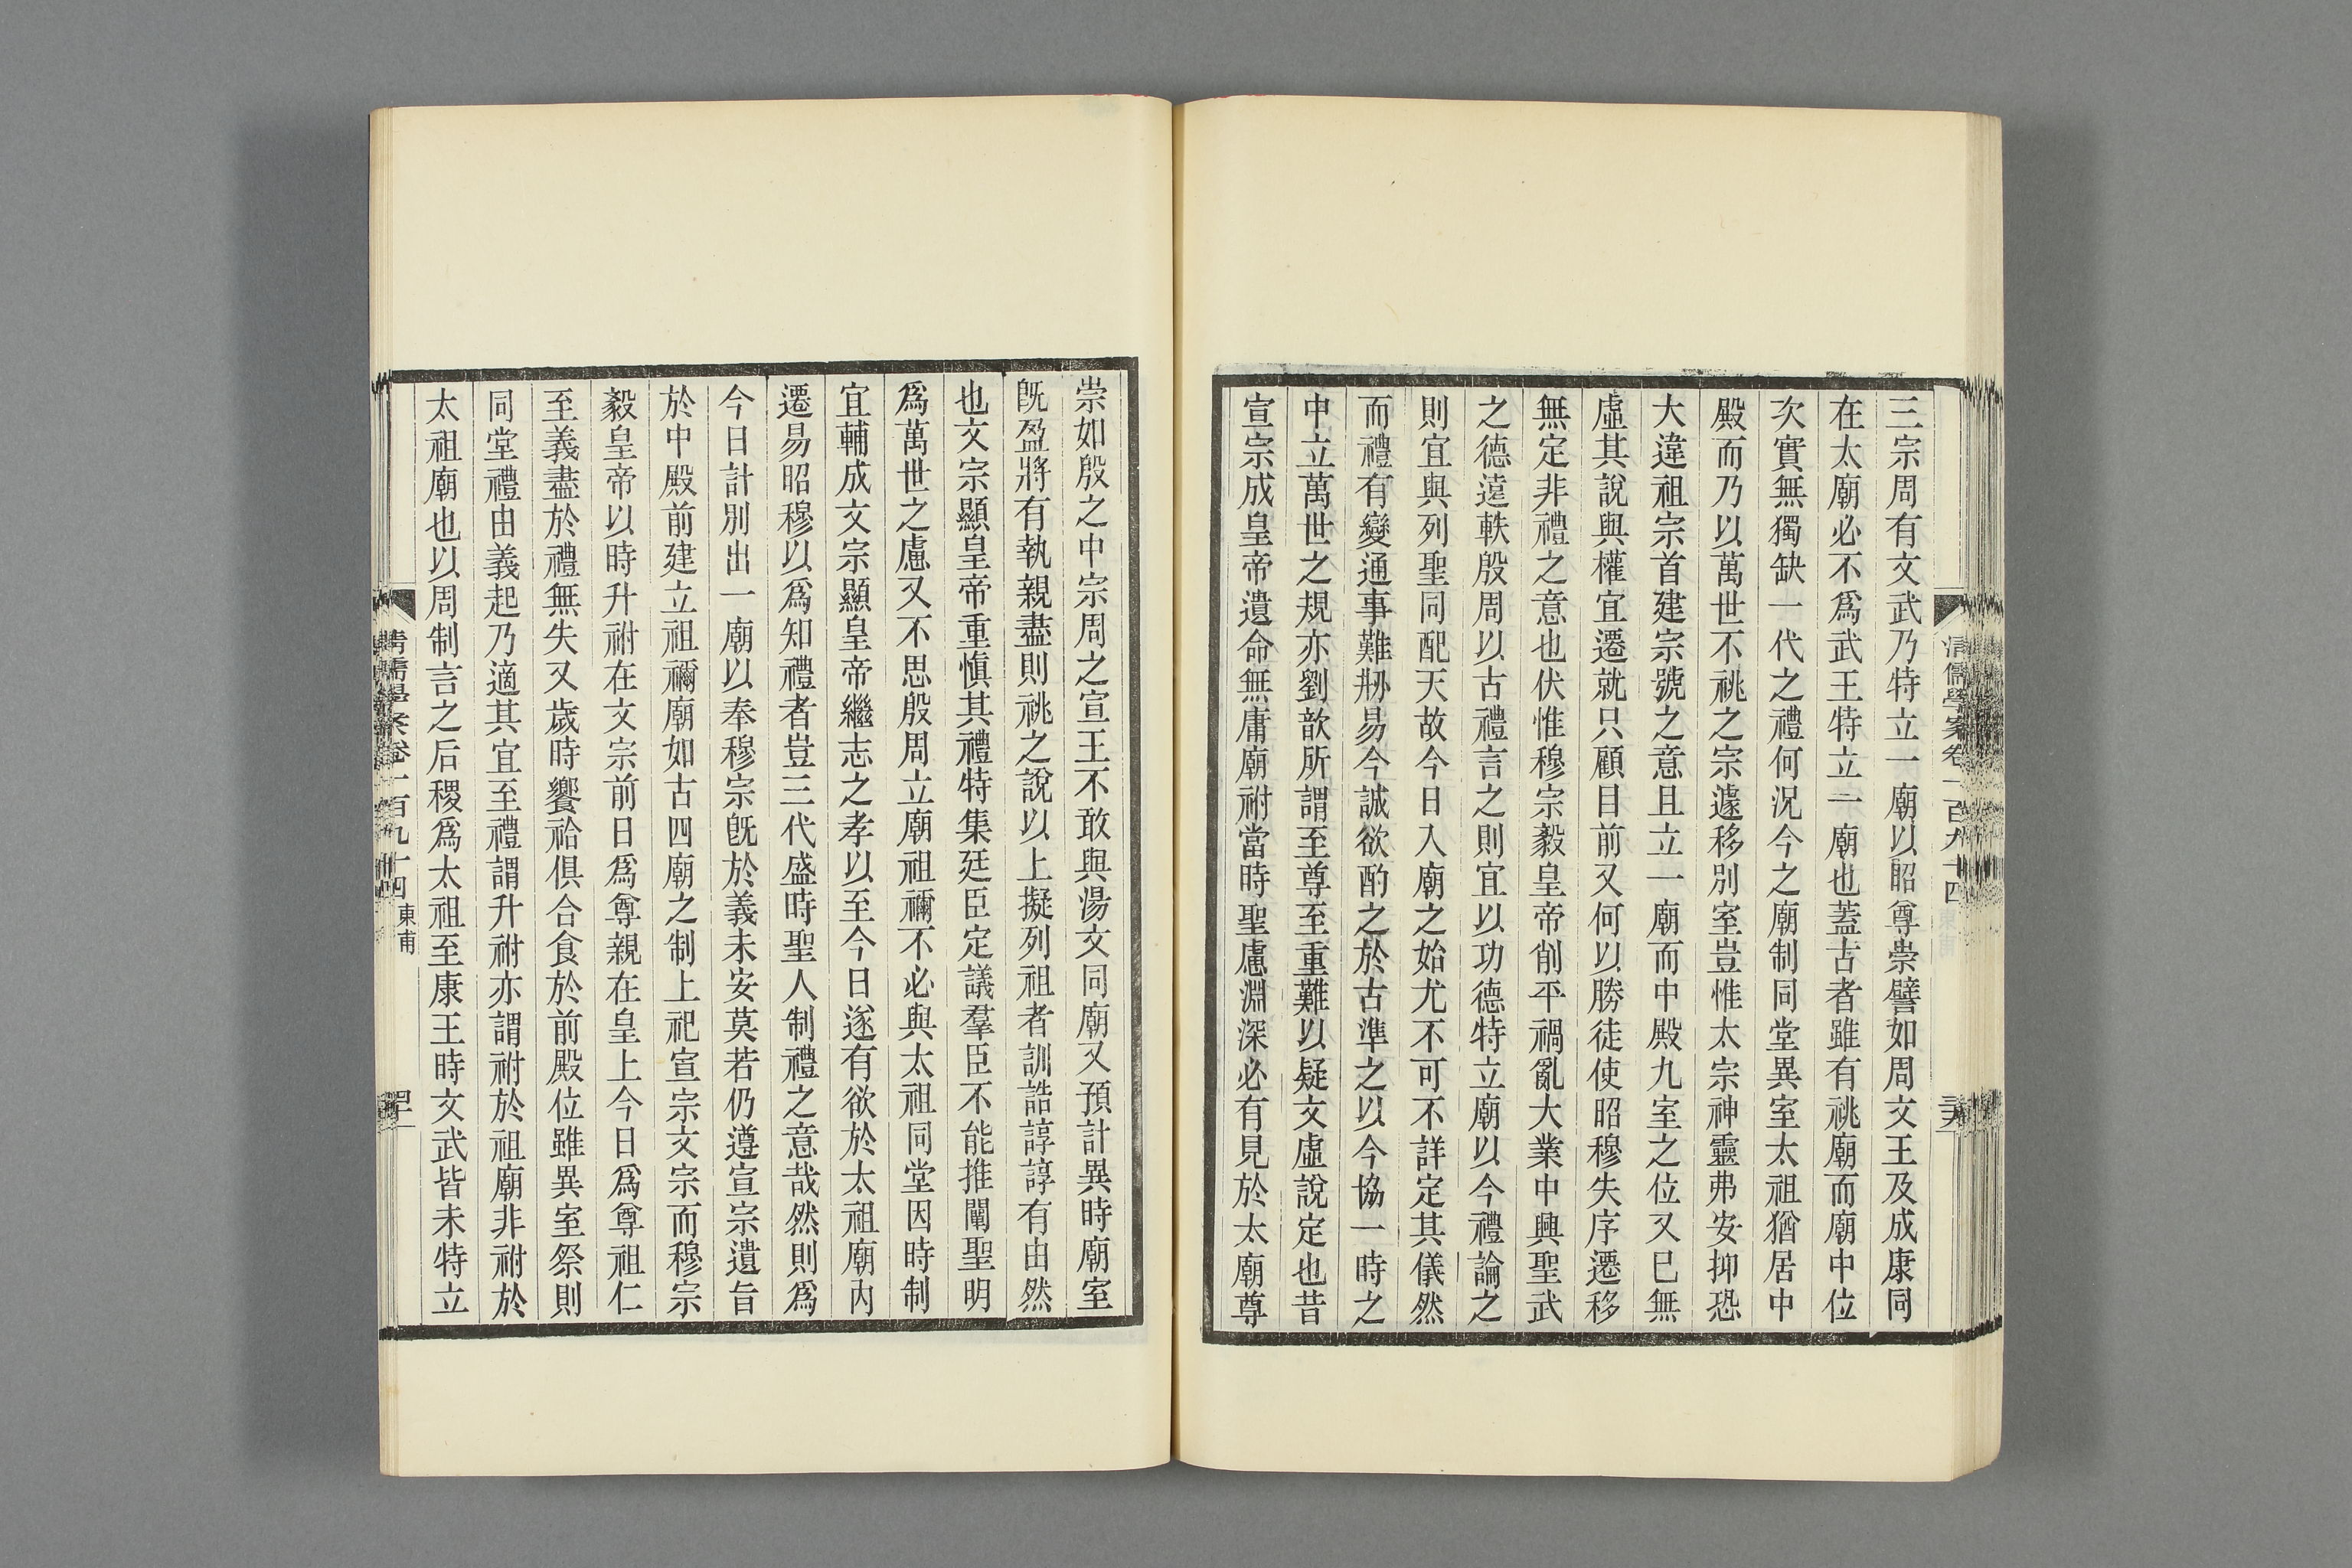 三宗周有文武乃特立一廟以昭尊崇譬如周文王及成康同
在太廟必不爲武王特立一廟也蓋古者雖有祧廟而廟中位
次實無獨缺一代之禮何況今之廟制同堂異室太祖猶居中
殿而乃以萬世不祧之宗遽移別室豈惟太宗神靈弗安抑恐
大違祖宗首建宗號之意且立一廟而中殿九室之位又已無
虛其說與權宜遷就只顧目前又何以勝徒使昭穆失序遷移
無定非禮之意也伏惟穆宗毅皇帝削平禍亂大業中興聖武
之德遠軼殷周以古禮言之則宜以功德特立廟以今禮論之
則宜與列聖同配天故今日入廟之始尤不可不詳定其儀然
而禮有變通事難刱易今誠欲酌之於古準之以今協一時之
中立萬世之規亦劉歆所謂至尊至重難以疑文虛說定也昔
宣宗成皇帝遺命無庸廟祔當時聖慮淵深必有見於太廟尊
清儒學案卷一百九十四
崇如殷之中宗周之宣王不敢與湯文同廟又預計異時廟室
既盈將有執親盡則祧之說以上擬列祖者訓誥諄諄有由然
也文宗顯皇帝重愼其禮特集廷臣定議羣臣不能推闡聖明
爲萬世之慮又不思殷周立廟祖禰不必與太祖同堂因時制
宜輔成文宗顯皇帝繼志之孝以至今日遂有欲於太祖廟內
遷易昭穆以爲知禮者豈三代盛時聖人制禮之意哉然則爲
今日計別出一廟以奉穆宗旣於義未安莫若仍遵宣宗遺旨
於中殿前建立祖禰廟如古四廟之制上祀宣宗文宗而穆宗
毅皇帝以時升祔在文宗前日爲尊親在皇上今日爲尊祖仁
至義盡於禮無失又歲時饗祫俱合食於前殿位雖異室祭則
同堂禮由義起乃適其宜至禮謂升祔亦謂祔於祖廟非祔於
太祖廟也以周制言之后稷爲太祖至康王時文武皆未特立
清儒學案卷一百九十四 東甫